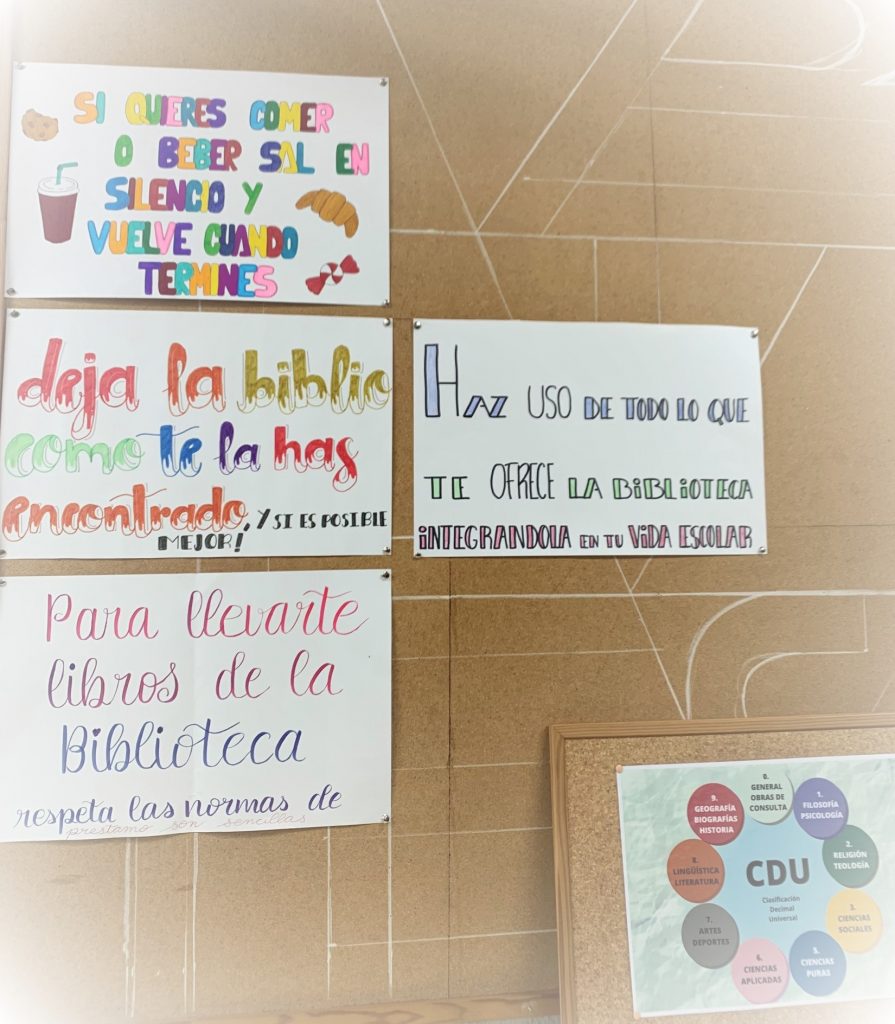 SI QUIERES COMER
O BEBER SAL EN
SILENCIO Y
VUELVE CUANDO
TERMINES
deja la biblio
como te la has
encontrado, Y SI ES POSIBLE
MEJOR!
HAZ USO DE TODO LO QUE
TE OFRECE LA BiBLiOTECA
iNTEGRANDOLA EN TU ViDA ESCOLAR
Para llevarte
libros de la
Biblioteca
respeta las normas de
prestamo son sencillas
0.
GENERAL
OBRAS DE
CONSULTA
1.
FILOSOFÍA
PSICOLOGÍA
2.
RELIGIÓN
TEOLOGÍA
3.
CIENCIAS
SOCIALES
5.
CIENCIAS
PURAS
6.
CIENCIAS
APLICADAS
7.
ARTES
DEPORTES
8.
LINGÜÍSTICA
LITERATURA
9.
GEOGRAFÍA
BIOGRAFÍAS
HISTORIA
CDU
Clasificación
Decimal
Universal